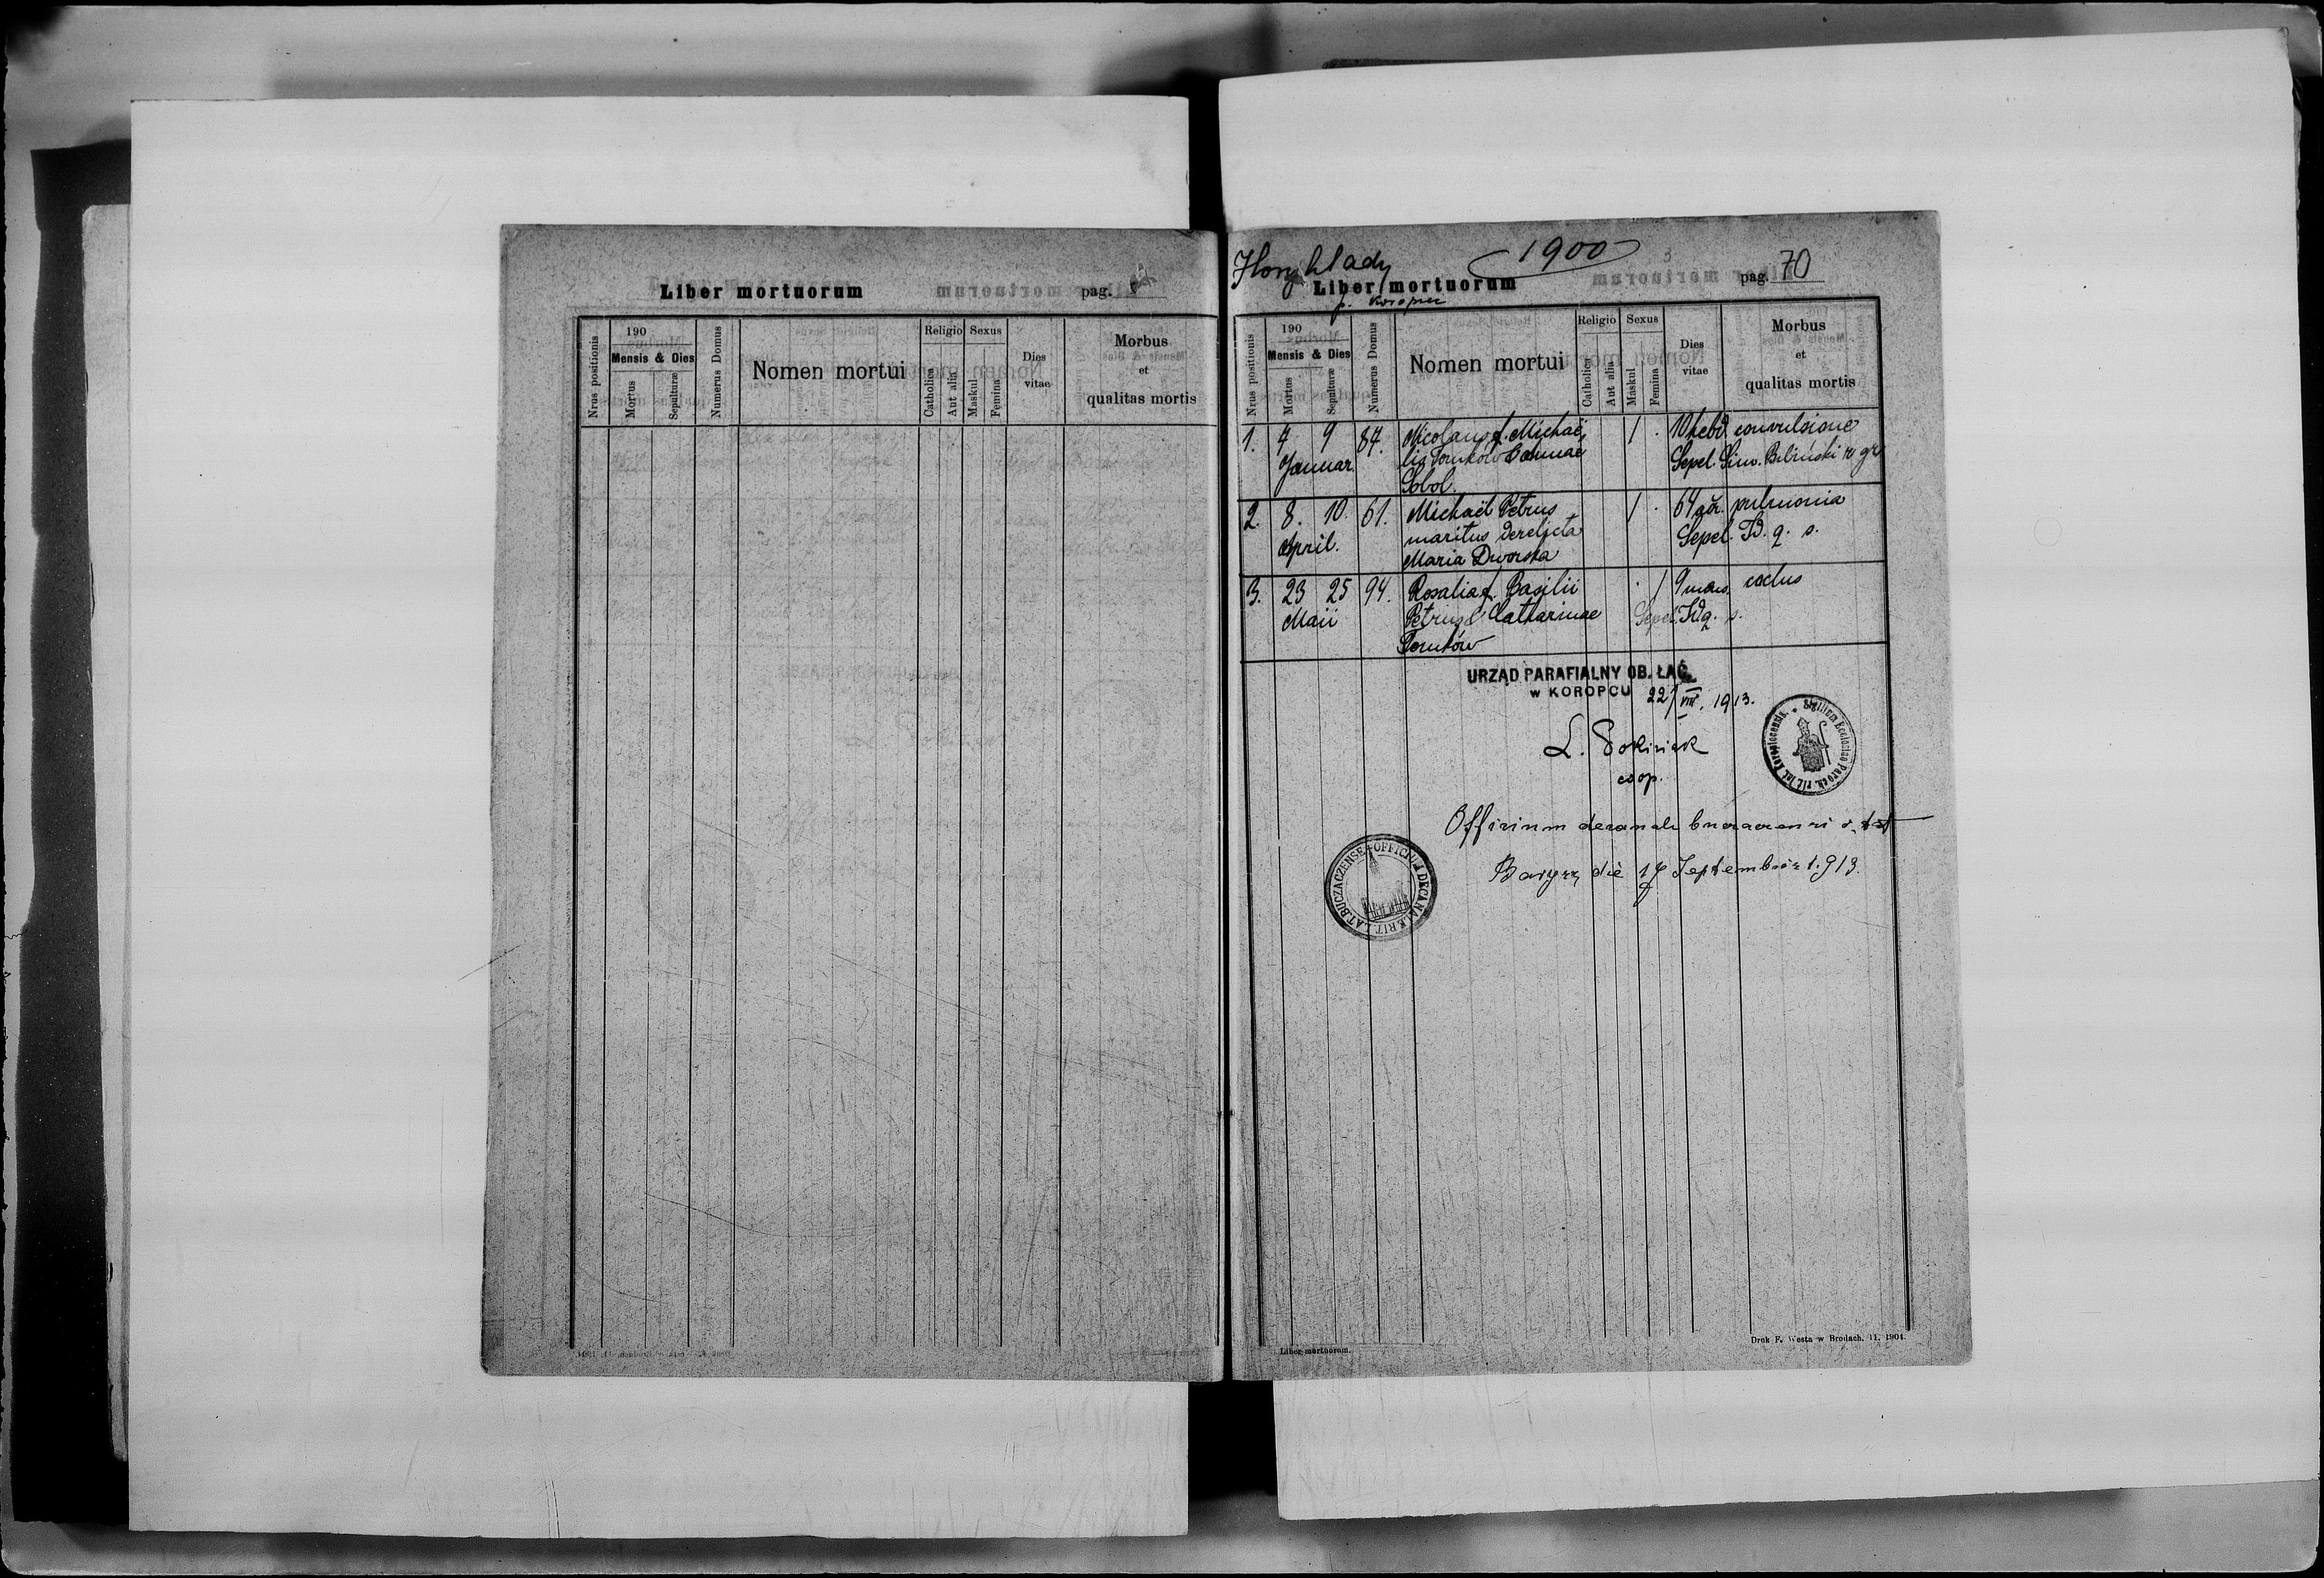 Liber mortuorum
pag.
Nrus positionis
190
Mensis & Dies
Mortus
Sepulturæ
Numerus Domus
Nomen mortui
Religio
Catholica
Aut alia
Sexus
Maskul
Femina
Dies
vitae
Morbus
et
qualitas mortis
Horyhlady
1900
Liber mortuorum
pag. 70
p. Koropiec
Nrus positionis
190
Mensis & Dies
Mortus
Sepulturæ
Numerus Domus
Nomen mortui
Religio
Catholica
Aut alia
Sexus
Maskul
Femina
Dies
vitae
Morbus
et
qualitas mortis
1. 7 9 87. Nicolaus f. Michaë 1 . 10 hebd. convulsione
Januar lis Tomków & Annae Sepel. Sim. Biliński r. gr
Sobol.
2. 8. 10. 61. Michaël Petrus 1 . 64 an. pulmonia
April. maritus derelicta Sepel. Id. q. s.
Maria Dworska
3. 23 25 94. Rosalia f. Basilii . 1 9 mens.
Maii Petrus & Catharinae Sepel. Id q. s.
Tomków
URZĄD PARAFIALNY OB. ŁAĆ.
w KOROPCU 22/VIII. 1913.
L.
coop.
Sigillum Ecclesiae Paroch. rit. lat. Koropiecensis.
Officium decanale r. lat
OFFICIUM DECANALE RIT. LAT. BUCZACZENSE
Barysz die 17 Septembris 1913.
Liber mortuorum.
Druk F. Westa w Brodach. 11. 1904.